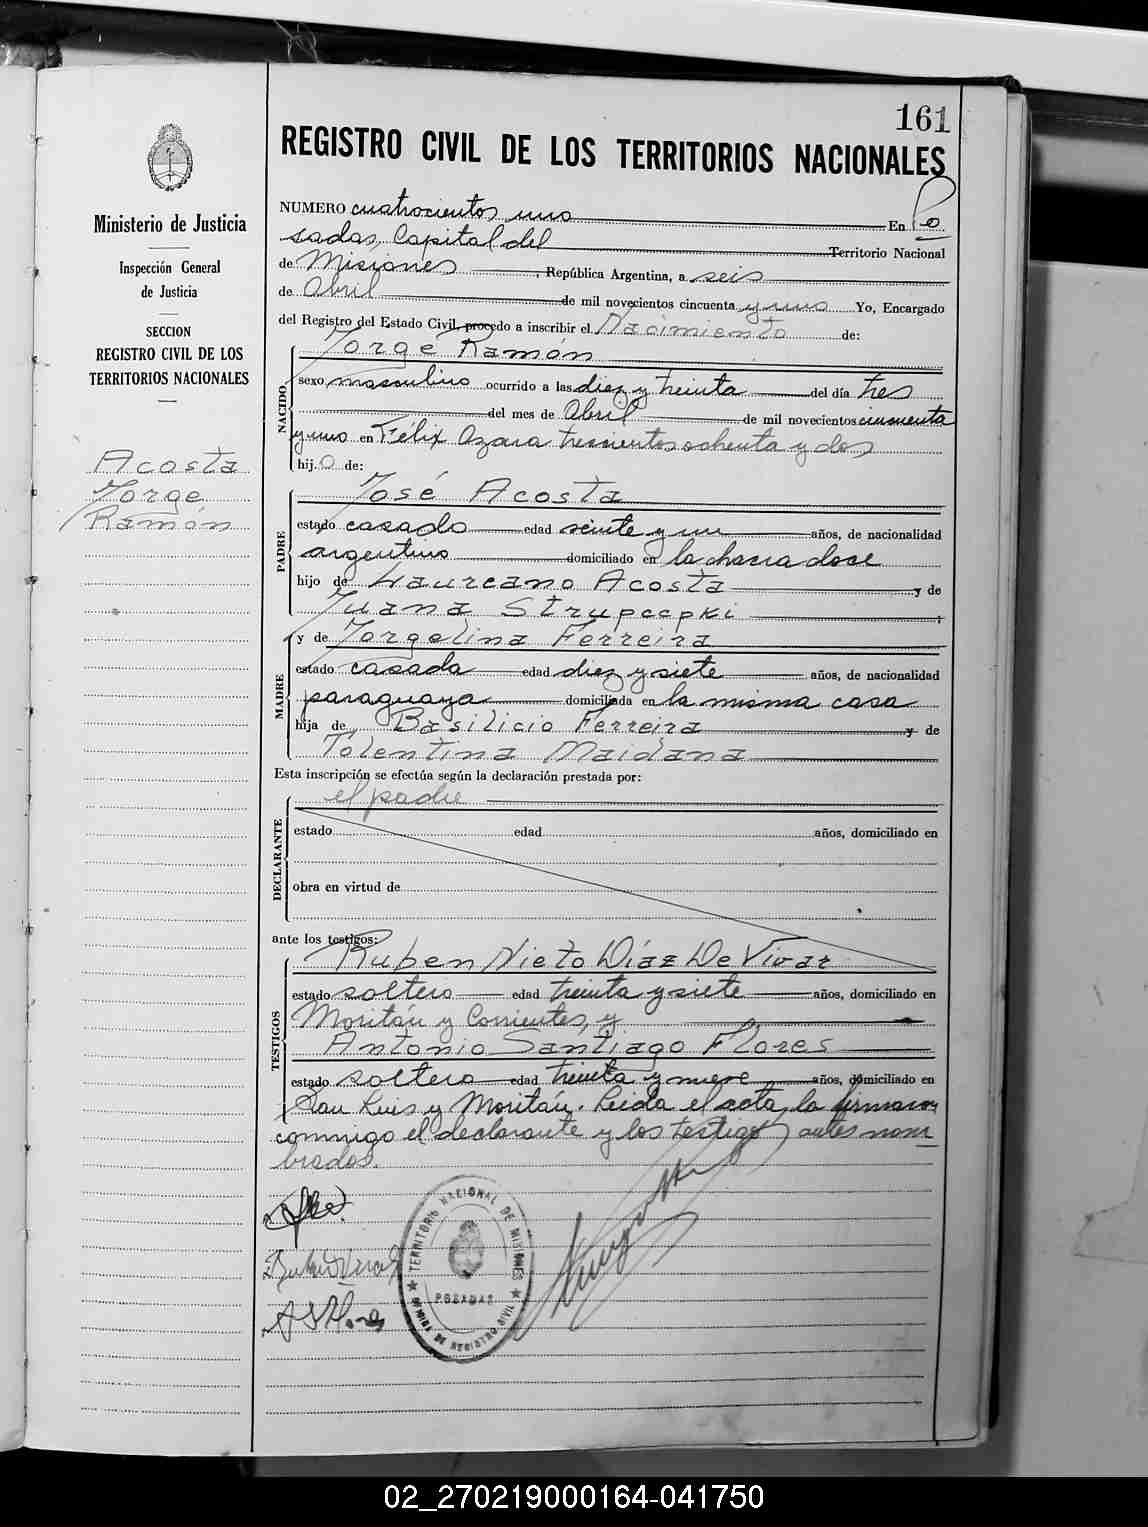 161
REGISTRO CIVIL DE LOS TERRITORIOS NACIONALES
Ministerio de Justicia
Inspección General
de Justicia
SECCION
REGISTRO CIVIL DE LOS
TERRITORIOS NACIONALES
Acosta
Jorge
Ramón
NUMERO cuatrocientos uno En Po
sadas, Capital del Territorio Nacional
de Misiones, República Argentina, a seis
de Abril de mil novecientos cincuenta y uno Yo, Encargado
del Registro del Estado Civil, procedo a inscribir el Nacimiento de:
NACIDO
Jorge Ramón
sexo masculino ocurrido a las diez y treinta del día tres
del mes de Abril de mil novecientos cincuenta
y uno en Félix Azara trescientos ochenta y dos
hijo de:
PADRE
José Acosta
estado casado edad veinte y un años, de nacionalidad
argentino domiciliado en la chacra doce
hijo de Laureano Acosta y de
Juana Strupecpki;
MADRE
y de Jorgelina Ferreira
estado casada edad diez y siete años, de nacionalidad
paraguaya domiciliada en la misma casa
hija de Basilicio Ferreira y de
Tolentina Maidana
Esta inscripción se efectúa según la declaración prestada por:
DECLARANTE
el padre
estado edad años, domiciliado en
obra en virtud de
ante los testigos:
TESTIGOS
Ruben Nieto Díaz De Vivar
estado soltero edad treinta y siete años, domiciliado en
Moritán y Corrientes, y
Antonio Santiago Flores
estado soltero edad treinta y nueve años, domiciliado en
San Luis y Moritán. Leida el acta la firmaron
conmigo el declarante y los testigos antes nom
brados.
TERRITORIO NACIONAL DE MISIONES
POSADAS
OFICINA DE REGISTRO CIVIL
02_270219000164-041750